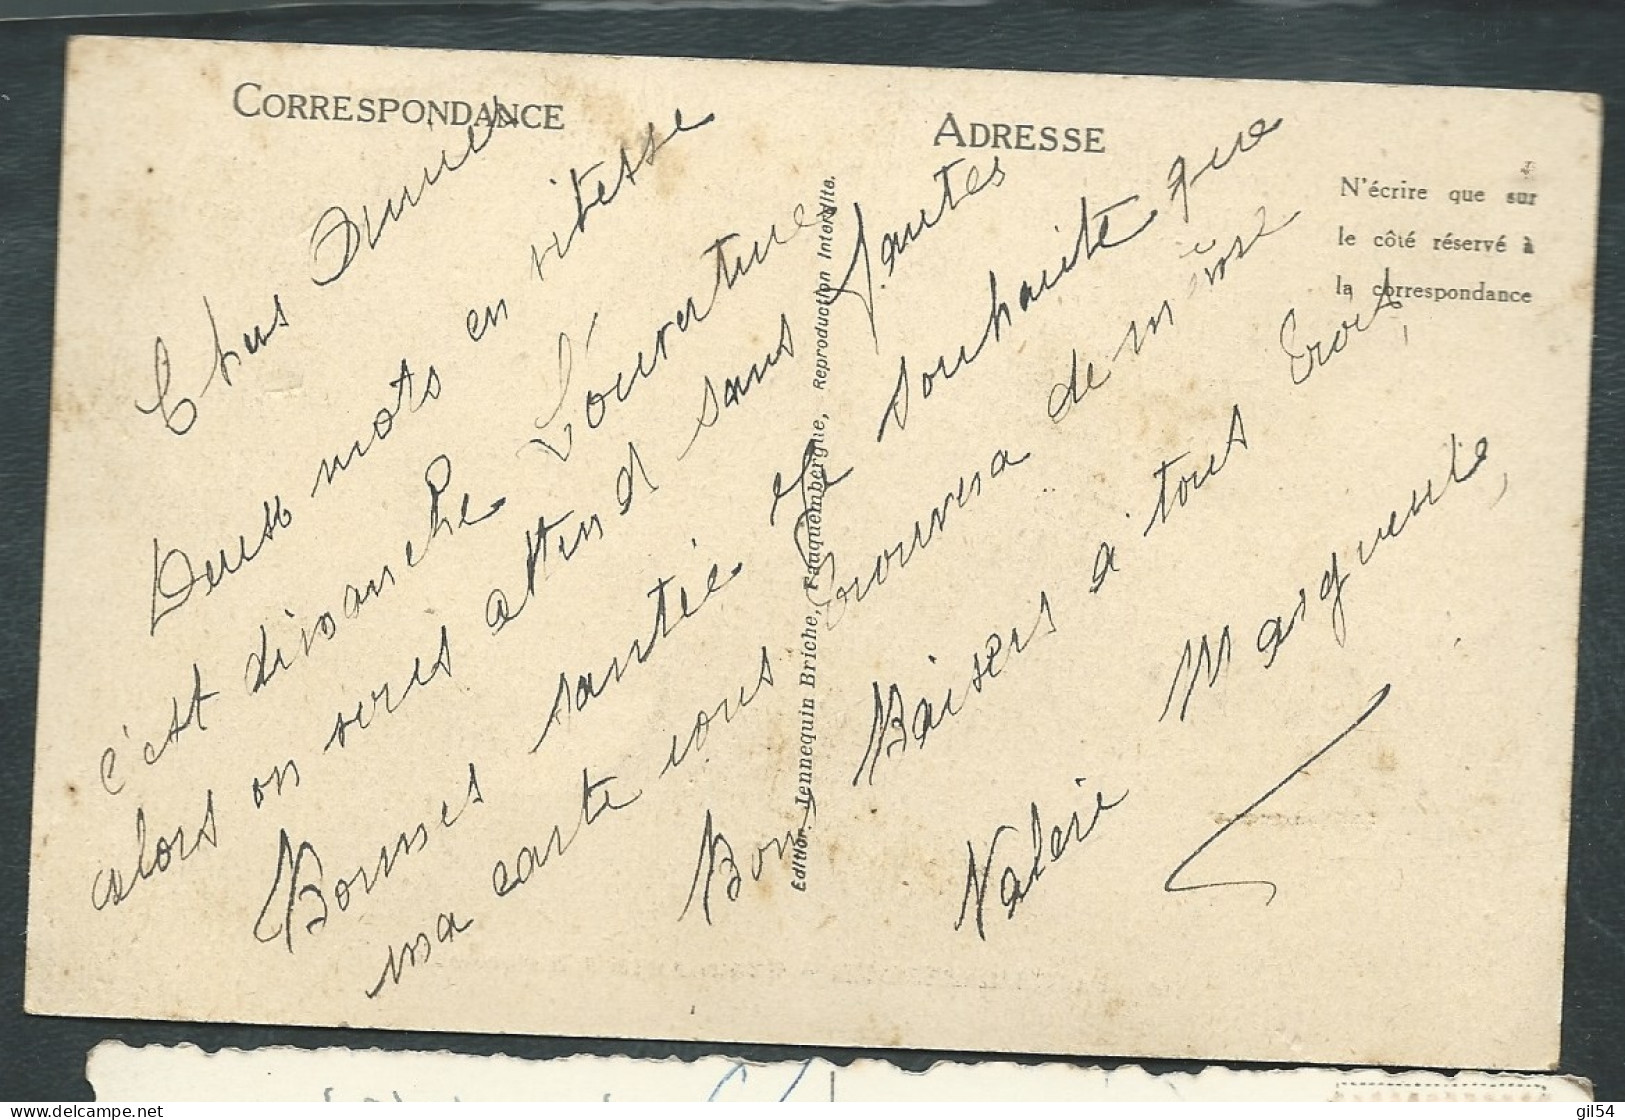 CORRESPONDANCE
ADRESSE
N'écrire que sur
le côté réservé à
la correspondance
Chers Amies
Deux mots en vitesse
c'est dimanche L'ouverture
alors on vous attend sans fautes
Bonnes santée Je souhaite que
ma carte vous trouvera de même
Bons Baisers a tous trois,
Valérie Marguerite,
Edition Jennequin Briche, Fauquembergue, Reproduction Interdite.
delcampe.net
gil54